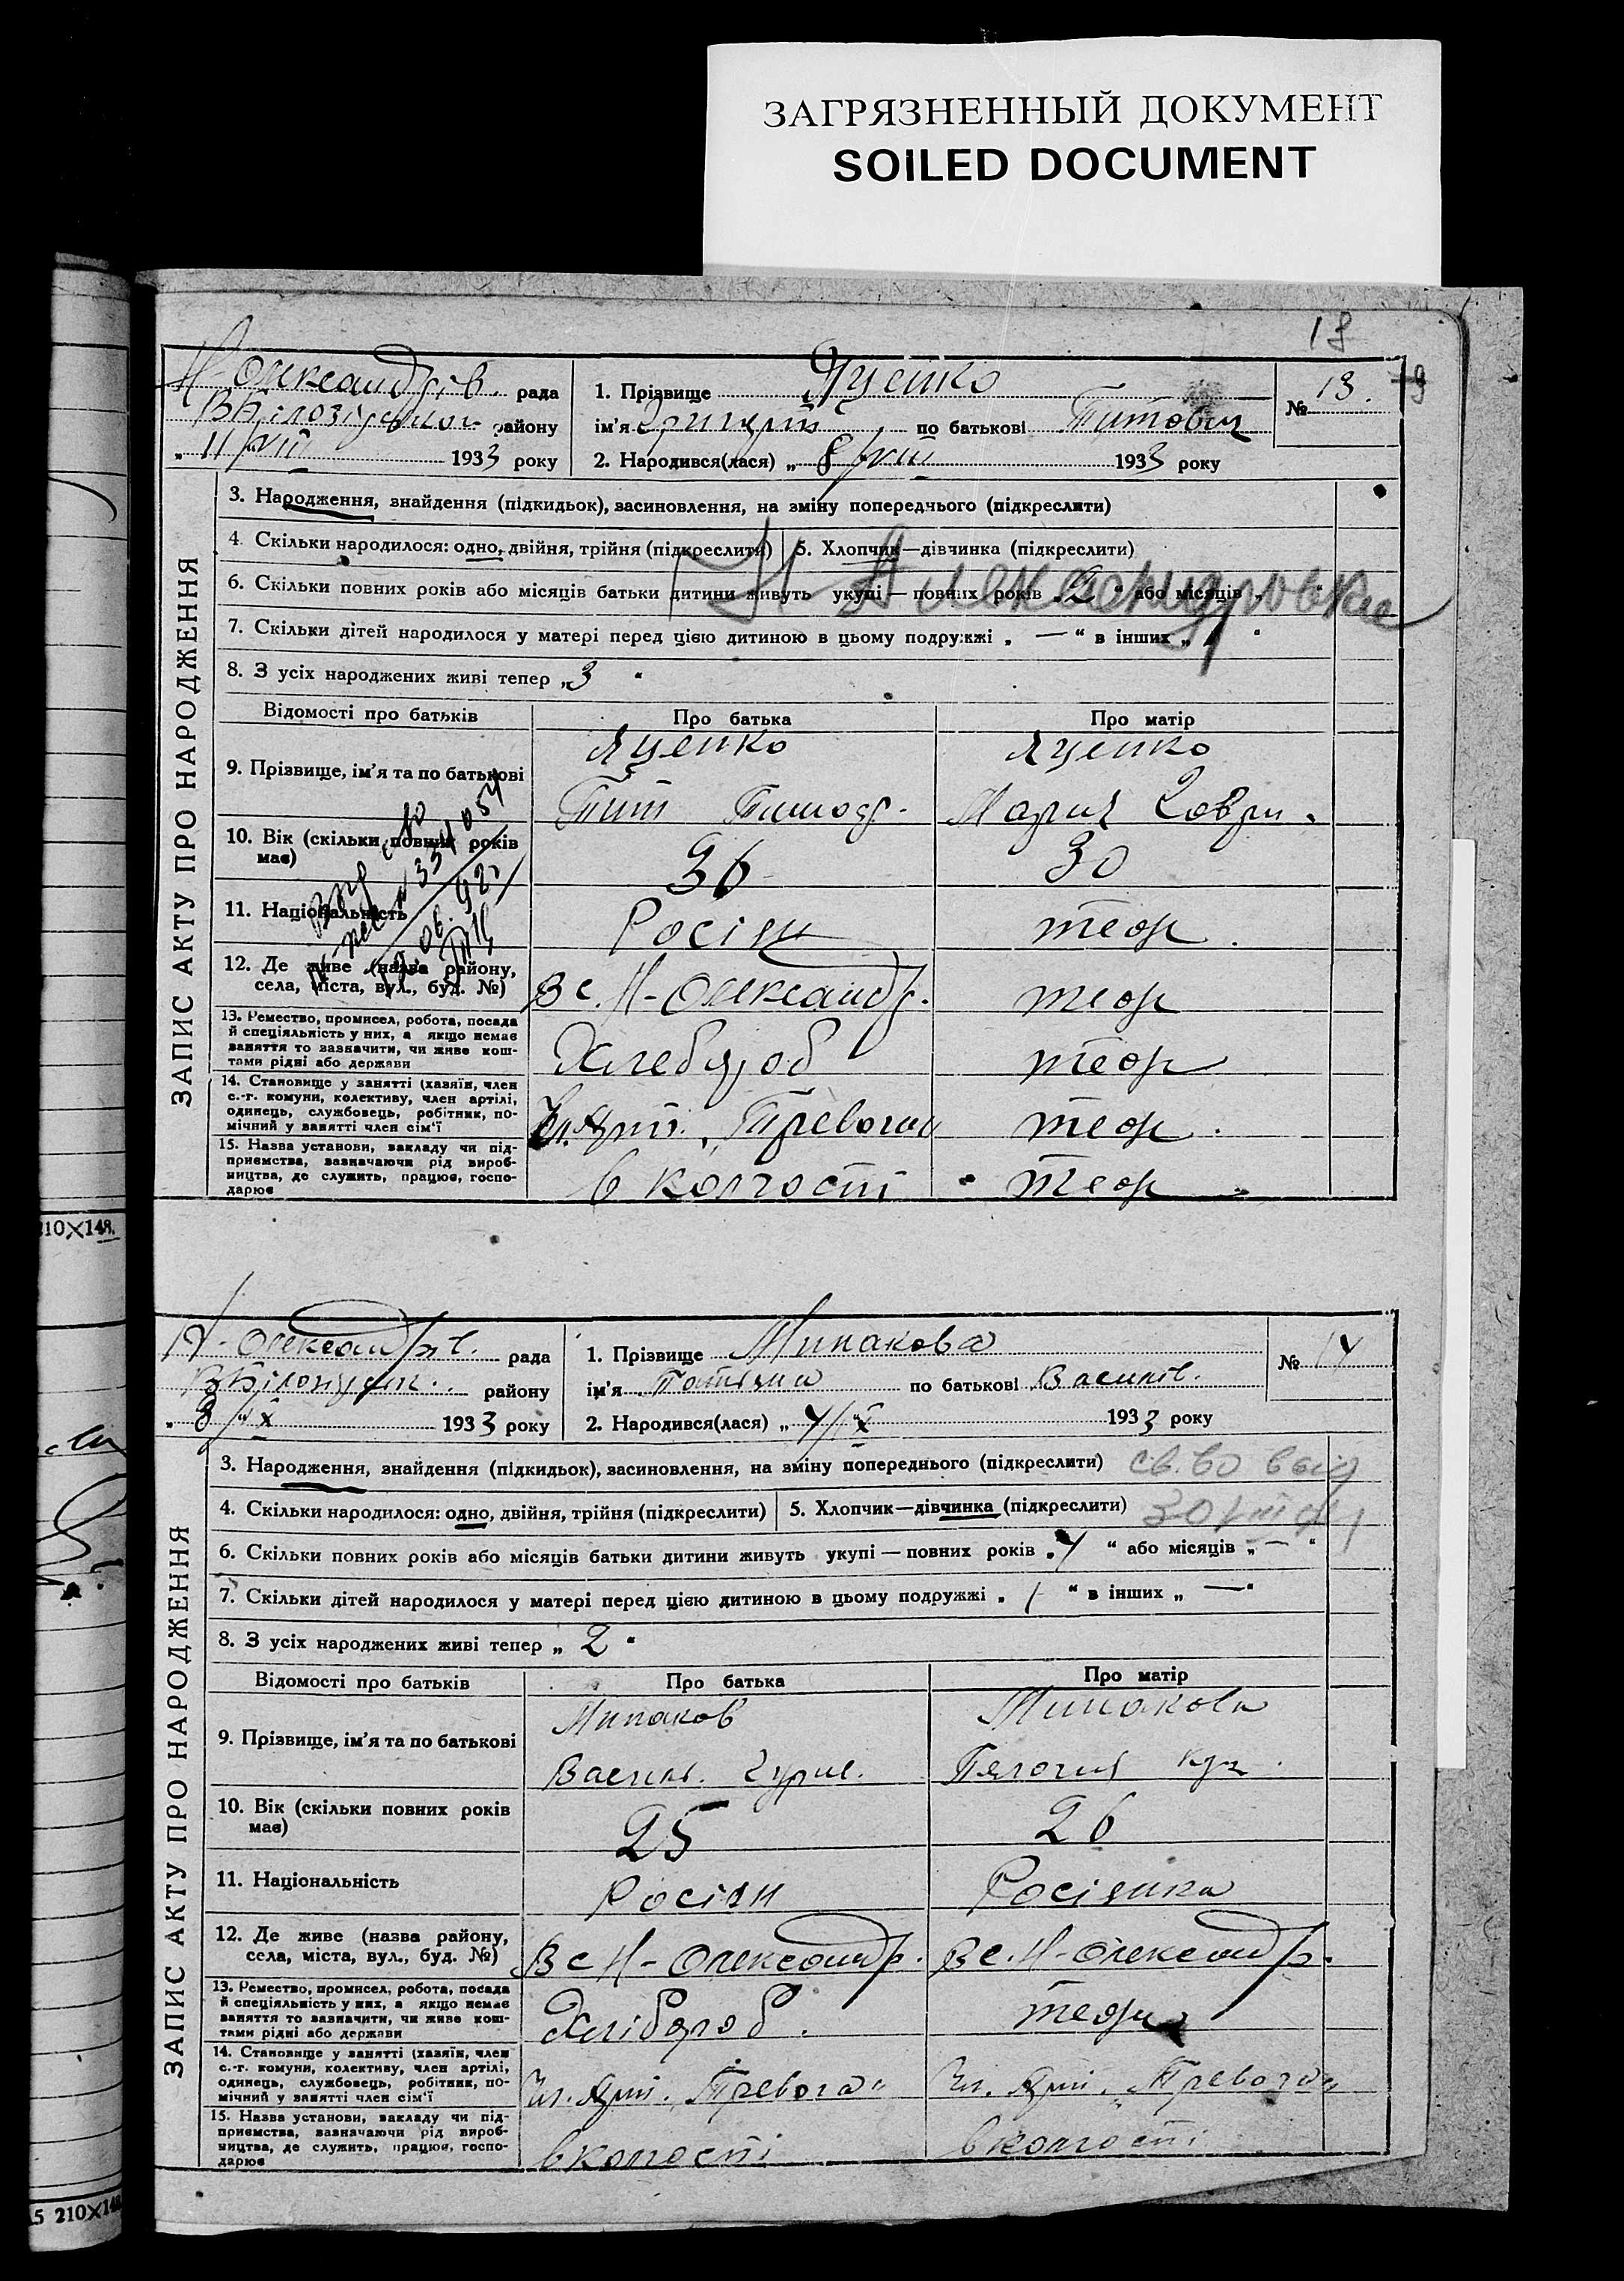 ЗАГРЯЗНЕННЫЙ ДОКУМЕНТ
SOILED DOCUMENT
Н-Олександрів. рада
району
„11/VIII 1933 року
1. Прізвище Яценко
ім'я Григорій по батькові Титович
2. Народився(лася) „8/VIII 1933 року
№ 13.
ЗАПИС АКТУ ПРО НАРОДЖЕННЯ
3. Народження, знайдення (підкидьок), васиновлення, на зміну попереднього (підкреслити)
4. Скільки народилося: одно, двійня, трійня (підкреслити) 5. Хлопчик—дівчинка (підкреслити)
Н Александровка
6. Скільки повних років або місяців батьки дитини живуть укупі — повних років „2“ або місяців „
7. Скільки дітей народилося у матері перед цією дитиною в цьому подружжі „ — “ в інших „
8. З усіх народжених живі тепер „3“
Відомості про батьків Про батька Про матір
9. Прізвище, ім'я та по батькові
Яценко Яценко
Тит Тимоф. Мария Гаври.
10. Вік (скільки повних років має) 36 30
11. Національність Росіян теж.
12. Де живе (назва району, села, міста, вул., буд. №) В с. Н-Олександр. теж
13. Ремество, промисел, робота, посада
й спеціяльність у них, а якщо немає
заняття то зазначити, чи живе кош-
тами рідні або держави
Хлебороб теж
14. Становище у занятті (хазяїн, член
с.-г. комуни, колективу, член артілі,
одинець, службовець, робітник, по-
мічний у занятті член сім'ї
Чл. Арт. „Тревога“ теж.
15. Назва установи, закладу чи під-
приємства, зазначаючи рід вироб-
ництва, де служить, працює, госпо-
дарює
в колгоспі теж
210×148.
Н-Олександрів. рада
району
„8/IX 1933 року
1. Прізвище Минакова
ім'я Татіяна по батькові Василів.
2. Народився(лася) „4/IX 1933 року
№ 14
ЗАПИС АКТУ ПРО НАРОДЖЕННЯ
3. Народження, знайдення (підкидьок), васиновлення, на зміну попереднього (підкреслити)
4. Скільки народилося: одно, двійня, трійня (підкреслити) 5. Хлопчик—дівчинка (підкреслити)
6. Скільки повних років або місяців батьки дитини живуть укупі — повних років „4“ або місяців „—“
7. Скільки дітей народилося у матері перед цією дитиною в цьому подружжі „1“ в інших „—“
8. З усіх народжених живі тепер „2“
Відомості про батьків Про батька Про матір
9. Прізвище, ім'я та по батькові
Минаков Минакова
Василь Пелагия
10. Вік (скільки повних років має) 25 26
11. Національність Росіян Росіянка
12. Де живе (назва району, села, міста, вул., буд. №) В с Н-Олександр. В с. Н-Олександр.
13. Ремество, промисел, робота, посада
й спеціяльність у них, а якщо немає
заняття то зазначити, чи живе кош-
тами рідні або держави
Хлібороб. теж
14. Становище у занятті (хазяїн, член
с.-г. комуни, колективу, член артілі,
одинець, службовець, робітник, по-
мічний у занятті член сім'ї
Чл. Арт. „Тревога“ Чл. Арт. „Тревога“
15. Назва установи, закладу чи під-
приємства, зазначаючи рід вироб-
ництва, де служить, працює, госпо-
дарює
в колгоспі в колгоспі